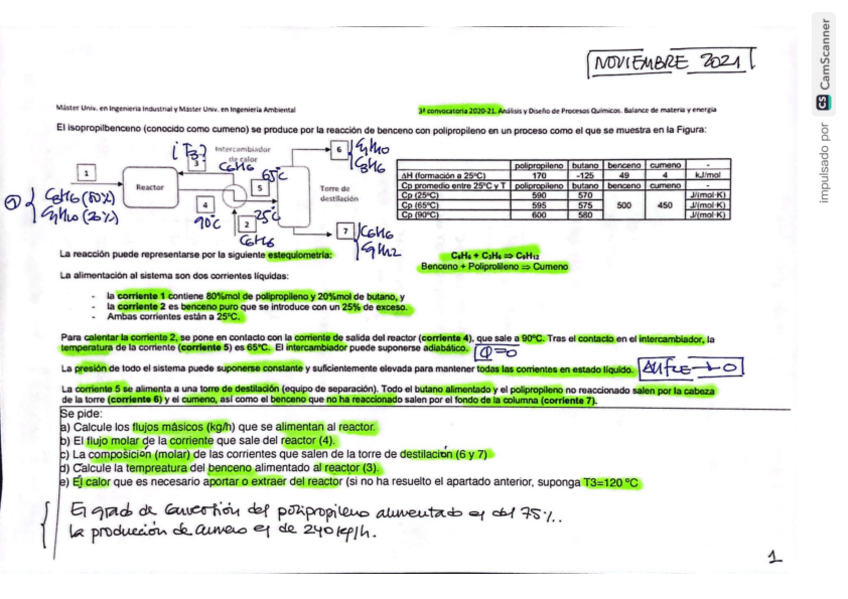 NOVIEMBRE 2021
Máster Univ. en Ingeniería Industrial y Máster Univ. en Ingeniería Ambiental
3ª convocatoria 2020-21. Análisis y Diseño de Procesos Químicos. Balance de materia y energía
El isopropilbenceno (conocido como cumeno) se produce por la reacción de benceno con polipropileno en un proceso como el que se muestra en la Figura:
¿T3?
Intercambiador de calor
C6H6
65ºC
1
3
5
6
C4H10
C3H6
Reactor
4
90ºC
2
25ºC
C6H6
Torre de destilación
7
C6H6
C9H12
① C3H6 (80%)
C4H10 (20%)
polipropileno butano benceno cumeno -
ΔH (formación a 25ºC) 170 -125 49 4 kJ/mol
Cp promedio entre 25ºC y T polipropileno butano benceno cumeno -
Cp (25ºC) 590 570 J/(mol·K)
Cp (65ºC) 595 575 500 450 J/(mol·K)
Cp (90ºC) 600 580 J/(mol·K)
La reacción puede representarse por la siguiente estequiometría:
C6H6 + C3H6 ⇒ C9H12
Benceno + Poliprolileno ⇒ Cumeno
La alimentación al sistema son dos corrientes líquidas:
- la corriente 1 contiene 80%mol de polipropileno y 20%mol de butano, y
- la corriente 2 es benceno puro que se introduce con un 25% de exceso.
- Ambas corrientes están a 25ºC.
Para calentar la corriente 2, se pone en contacto con la corriente de salida del reactor (corriente 4), que sale a 90ºC. Tras el contacto en el intercambiador, la
temperatura de la corriente (corriente 5) es 65ºC. El intercambiador puede suponerse adiabático. Q=0
La presión de todo el sistema puede suponerse constante y suficientemente elevada para mantener todas las corrientes en estado líquido.
La corriente 5 se alimenta a una torre de destilación (equipo de separación). Todo el butano alimentado y el polipropileno no reaccionado salen por la cabeza
de la torre (corriente 6) y el cumeno, así como el benceno que no ha reaccionado salen por el fondo de la columna (corriente 7).
Se pide:
a) Calcule los flujos másicos (kg/h) que se alimentan al reactor.
b) El flujo molar de la corriente que sale del reactor (4).
c) La composición (molar) de las corrientes que salen de la torre de destilación (6 y 7)
d) Calcule la tempreatura del benceno alimentado al reactor (3).
e) El calor que es necesario aportar o extraer del reactor (si no ha resuelto el apartado anterior, suponga T3=120 ºC
El grado de conversión del polipropileno alimentado es del 75%.
La producción de cumeno es de 240 kg/h.
1
impulsado por CS CamScanner